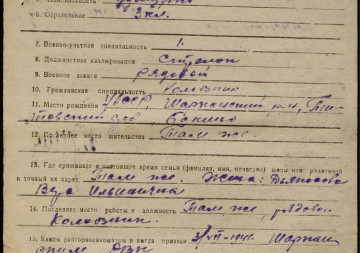 6. Образование 3 кл.
7. Военно-учетная специальность 1.
8. Должностная квалификация стрелок
9. Военное звание рядовой
10. Гражданская специальность Колхозник
11. Место рождения УАССР, Шарканский р-н,
товский с/с
12. Последнее место жительства Там же.
13. Где проживает в настоящее время семья (фамилия, имя, отчество) жены или родителей
и точный их адрес Там же. Жена:
Ильинична
14. Последнее место работы и должность Там же, рядовой
Колхозник.
15. Каким райгорвоенкоматом и когда призван 1941. Шаркан
ским РВК